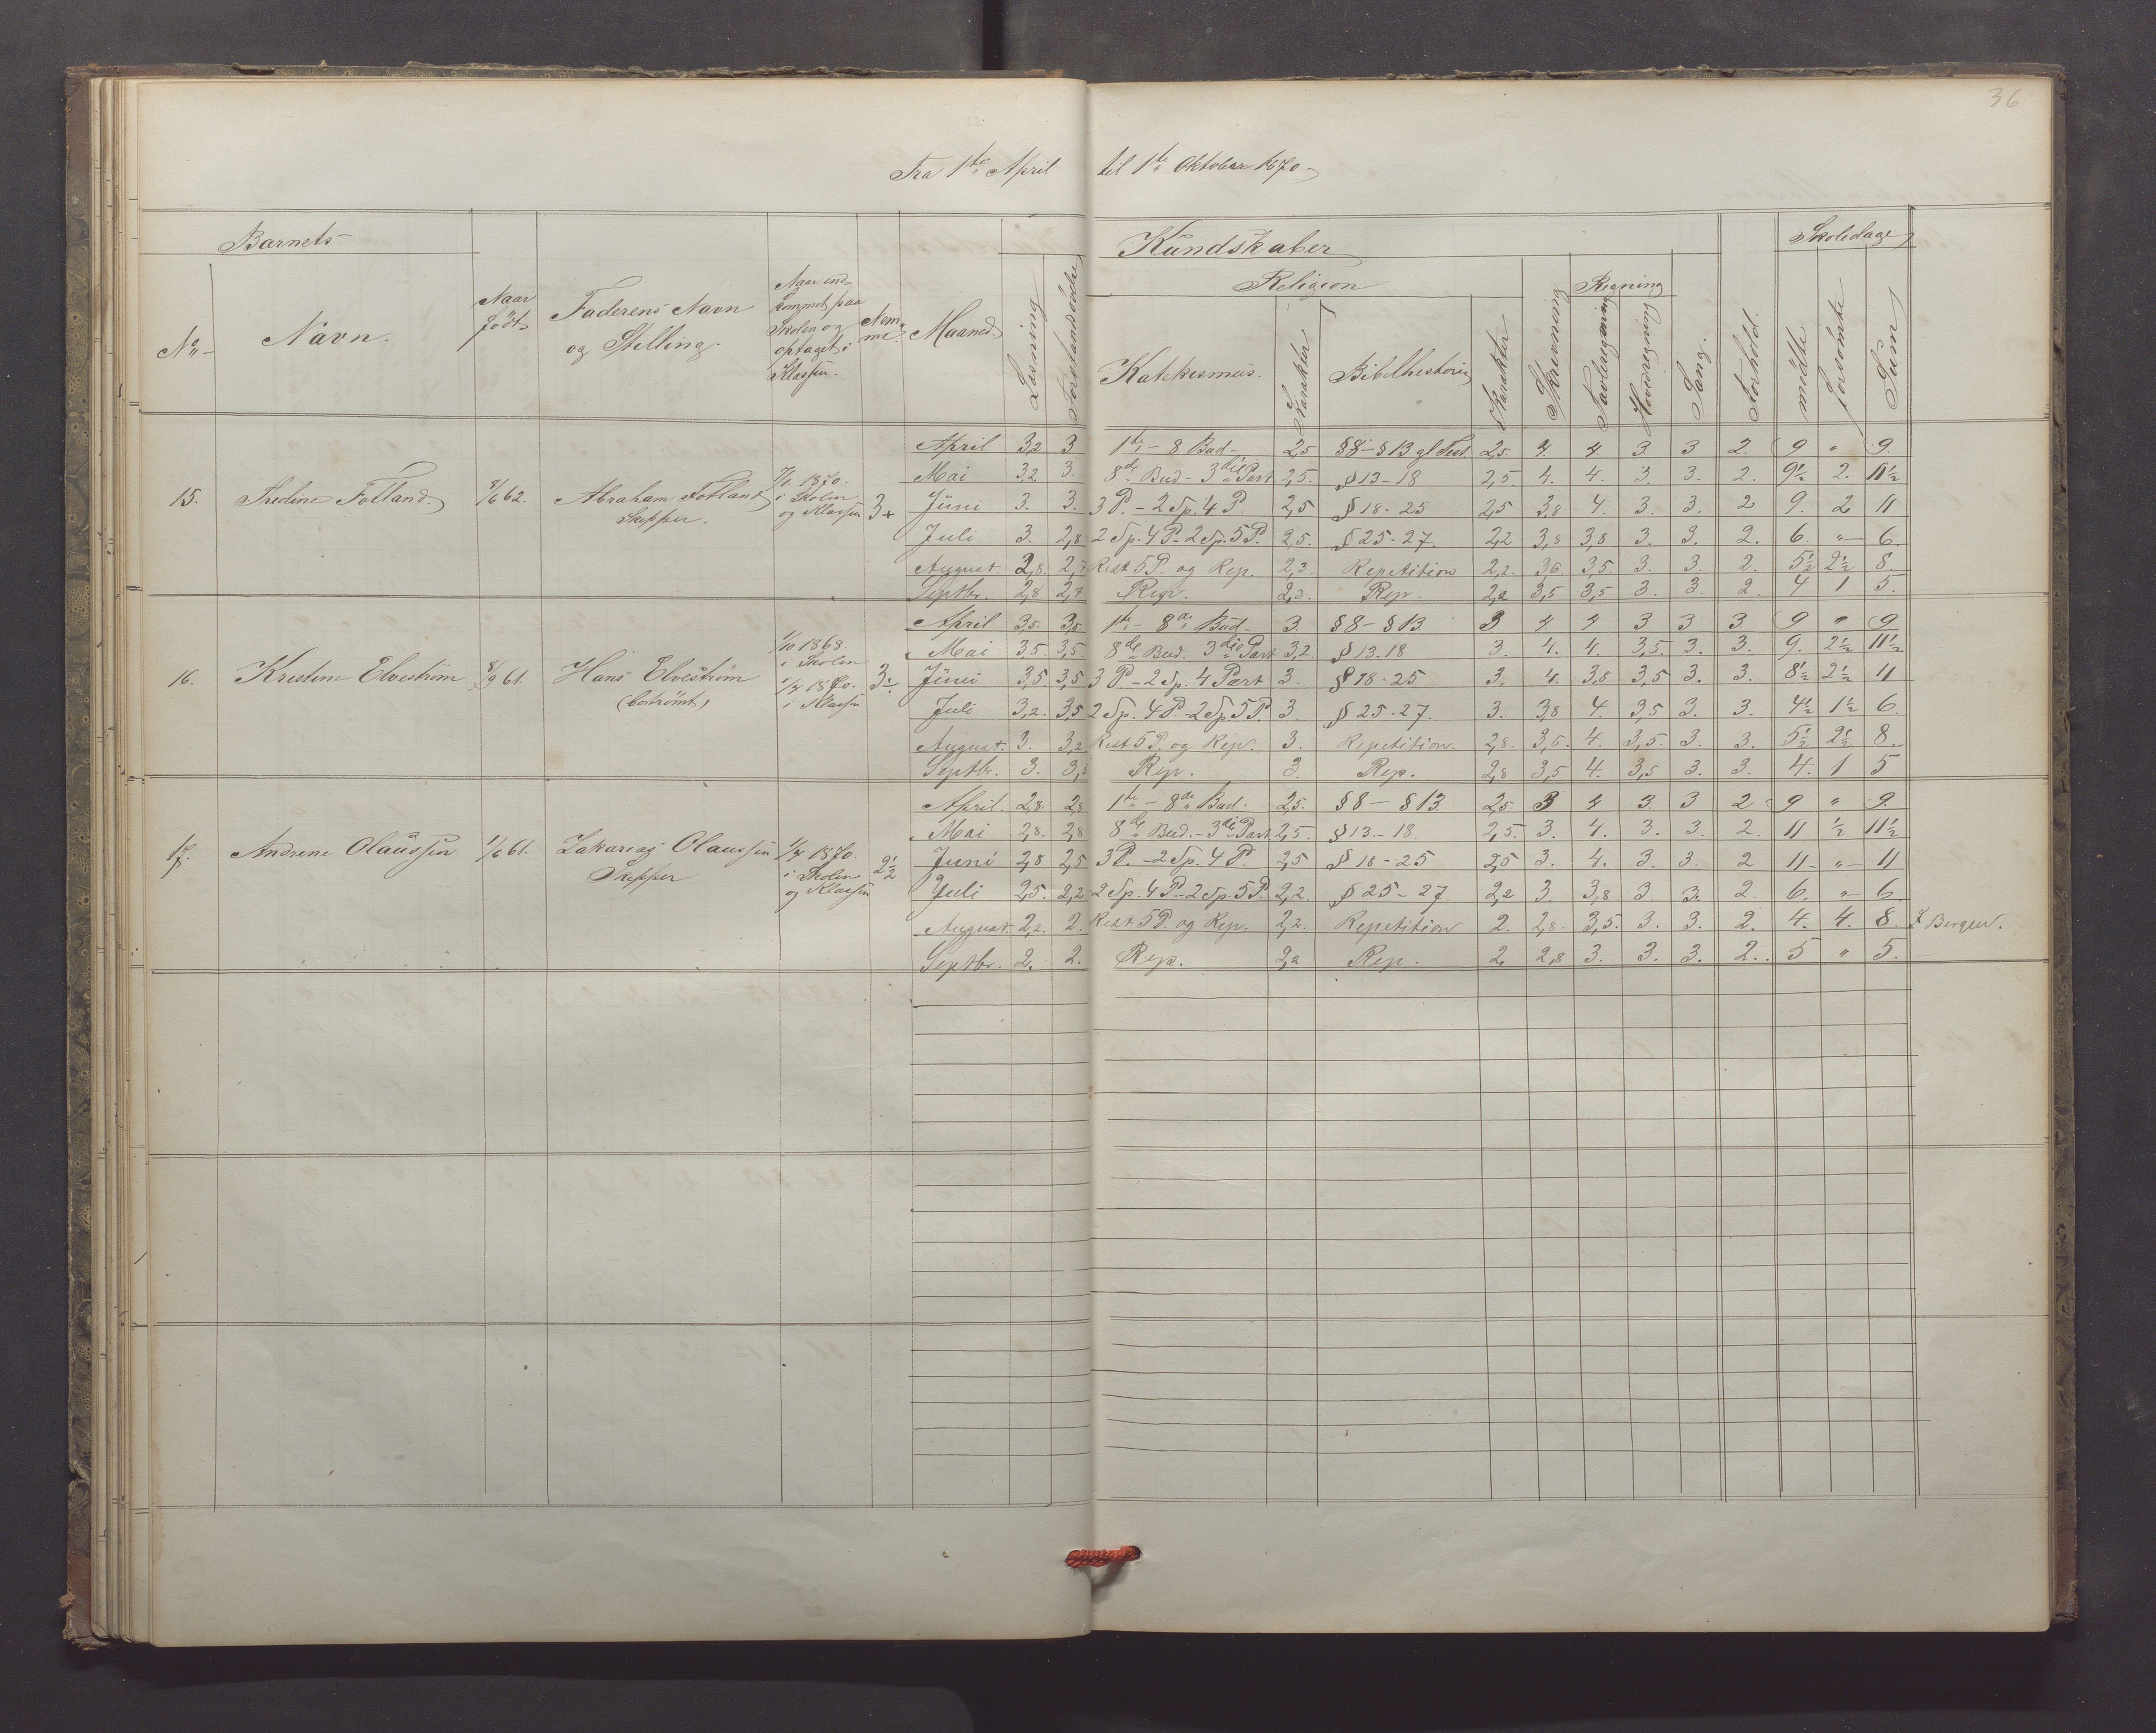 36
Fra 1ste April til 1ste Oktober 1870.
Barnets
Kundskaber
Skoledage
Religion
Regning
No
Navn.
Naar født
Faderens Navn og Stilling.
Naar ind-kommet paa Skolen og optaget i Klassen.
Nem-me.
Maaned.
Læsning
Forstandsøvelse
Katekismus.
Karakter
Bibelhistorie
Karakter
Skrivning
Tavleregning
Hovedregning
Sang.
Forhold.
mødte
forsømte
Sum
April 3,2 3 1ste - 8 Bud - 2,5 §8 - §13 gl Test 2,5 4 4 3 3 2. 9 " 9.
Mai 3,2 3. 8de Bud - 3die Part 2,5. §13-18 2,5. 4. 4. 3. 3. 2. 9½ 2. 11½
15. Fredine Fotland. 8/6 62. Abraham Fotland Skipper. 7/1 1870. i Skolen og Klassen 3+
Juni 3. 3. 3 P. - 2 Sp. 4 P. 2,5 §18-25 2,5 3,8 4. 3. 3. 2 9. 2 11
Juli 3. 2,8 2 Sp. 4 P - 2 Sp. 5 P. 2,5. §25-27. 2,2 3,8 3,8 3. 3. 2. 6. " 6.
August. 2,8. 2,7 Rest 5 P. og Rep. 2,3. Repetition 2,2. 3,6 3,5. 3. 3. 2. 5½ 2½ 8.
Septbr. 2,8 2,7 Rep. 2,3. Rep. 2,2 3,5 3,5 3. 3. 2. 4 1 5.
April 3,5. 3,5 1ste - 8de Bud - 3. §8 - §13. 3 4 4 3 3 3 9 " 9
Mai 3,5 3,5 8de Bud. 3die Part 3,2. §13-18 3. 4. 4. 3,5. 3. 3. 9. 2½ 11½
16. Kristine Elvestrøm 8/9 61. Hans Elvestrøm (bortrømt) 1/10 1868. i Skolen 1/4 1870. i Klassen 3÷
Juni 3,5 3,5 3 P. - 2 Sp. 4 Part 3. §18-25 3. 4. 3,8 3,5 3. 3. 8½ 2½ 11
Juli 3,2. 3,5 2 Sp. 4 P. - 2 Sp. 5 P. 3. §25-27. 3. 3,8 4. 3,5 3. 3. 4½ 1½ 6.
August. 3. 3,2 Rest 5 P. og Rep. 3. Repetition. 2,8. 3,6. 4. 3,5. 3. 3. 5½ 2½ 8
Septbr. 3. 3, Rep. 3. Rep. 2,8 3,5 4. 3,5 3. 3. 4. 1 5
April. 2,8. 2,8 1ste - 8de Bud. 2,5. §8 - §13. 2,5 3 4 3. 3 2 9 " 9.
Mai 2,8. 2,8 8de Bud. - 3die Part 2,5. §13.-18. 2,5. 3. 4. 3. 3. 2. 11 ½ 11½
17. Andrene Olaussen 1/6 61. Zakarias Olaussen Skipper 1/4 1870. i Skolen og Klassen 2½
Juni 2,8 2,5 3 P. - 2 Sp. 4 P. 2,5 §18-25 2,5 3. 4. 3. 3. 2 11 " 11
Juli 2,5. 2,2 2 Sp. 4 P - 2 Sp. 5 P. 2,2. §25-27. 2,2 3. 3,8 3 3. 2. 6. " 6.
August. 2,2. 2. Rest 5 P. og Rep. 2,2. Repetition 2. 2,8. 3,5. 3. 3. 2. 4. 4. 8. I Bergen.
Septbr. 2. 2. Rep. 2,2 Rep. 2. 2,8 3. 3. 3. 2. 5 " 5.